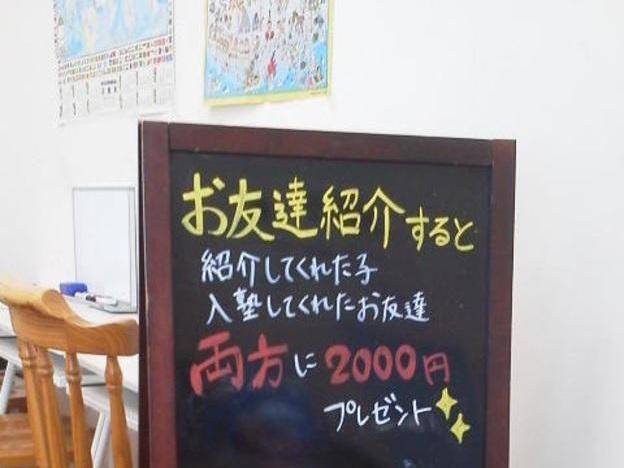 お友達紹介すると
紹介してくれた子
入塾してくれたお友達
両方に2000円
プレゼント